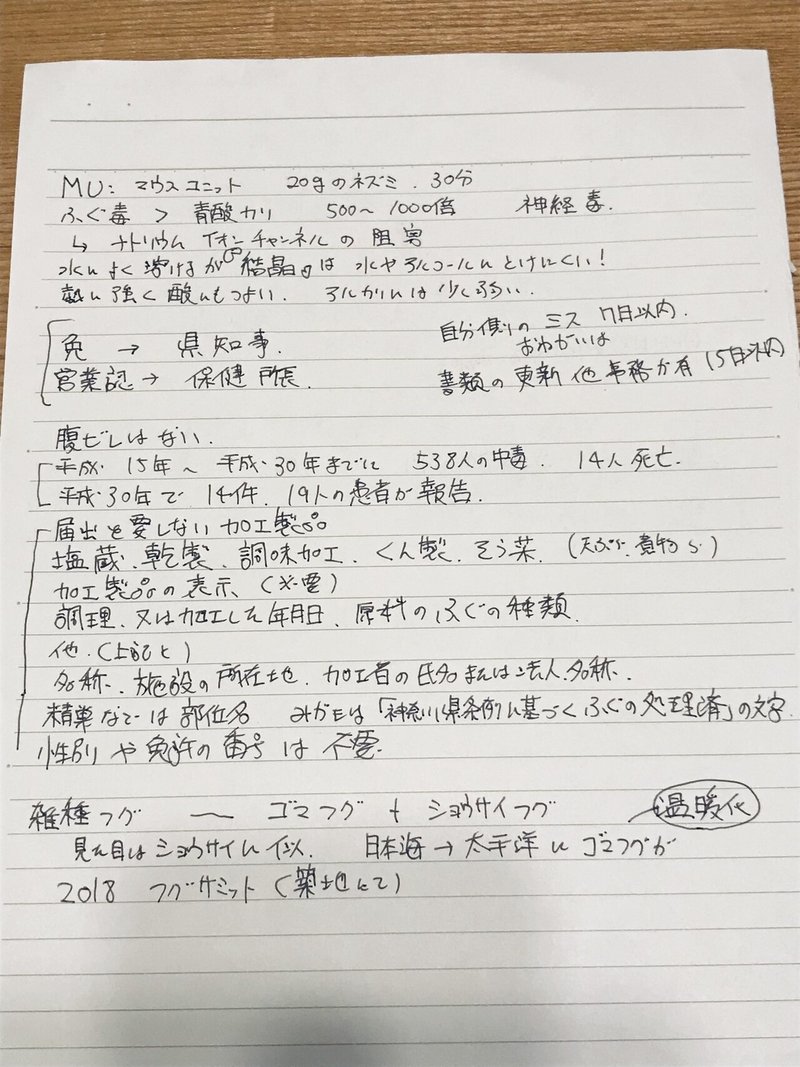 MU: マウスユニット 20gのネズミ. 30分
ふぐ毒 > 青酸カリ 500〜1000倍 神経毒.
↳ ナトリウムイオンチャンネルの阻害
水によく溶けるが『結晶』は水やアルコールにとけにくい!
熱に強く酸にもつよい. アルカリには少し弱い.
免 → 県知事.
営業認→ 保健所長.
自分側のミス 7日以内.
おねがいは
書類の更新他事務が有 15日以内
腹ビレはない.
平成 15年〜平成30年までに 538人の中毒. 14人死亡.
平成30年で 14件. 19人の患者が報告.
届出を要しない加工製品
塩蔵. 乾製. 調味加工. くん製. そう菜. (天ぷら. 煮物ら)
加工製品の表示. (必要)
調理. 又は加工した年月日. 原料のふぐの種類.
他. (上記と)
名称. 施設の所在地. 加工者の氏名または法人名称.
精巣などでは部位名 みがきは「神奈川県条例に基づくふぐの処理済」の文字.
性別や免許の番号は不要.
雑種フグ 〜 ゴマフグ + ショウサイフグ 温暖化
見た目はショウサイに似. 日本海→太平洋にゴマフグが
2018 フグサミット(築地にて)